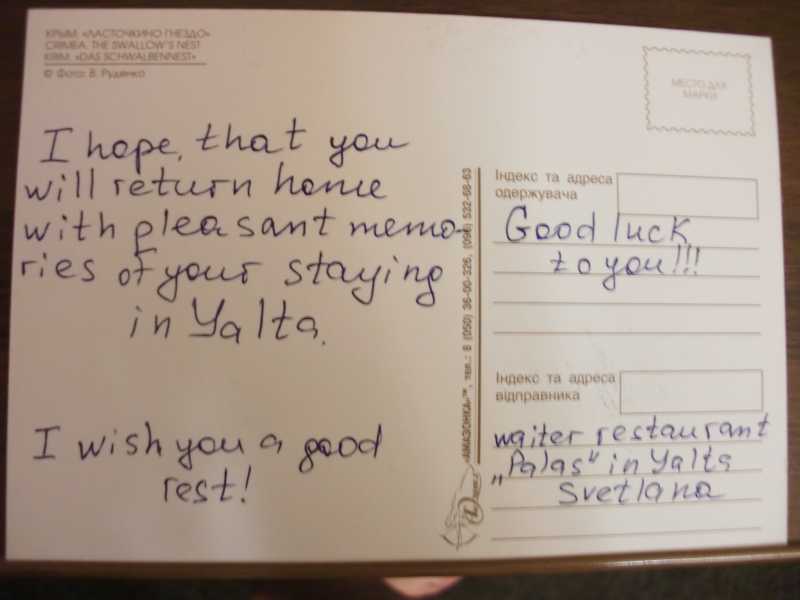 КРЫМ. «ЛАСТОЧКИНО ГНЕЗДО»
CRIMEA. THE SWALLOW'S NEST
KRIM. «DAS SCHWALBENNEST»
© Фото: В. Руденко
I hope, that you
will return home
with pleasant memo-
ries of your staying
in Yalta.
I wish you a good
rest!
«АМАЗОНКА»™, тел.: 8 (050) 36-00-326, (096) 532-68-63
МЕСТО ДЛЯ
МАРКИ
Індекс та адреса
одержувача
Good luck
to you!!!
Індекс та адреса
відправника
waiter restaurant
„Palas“ in Yalta
Svetlana